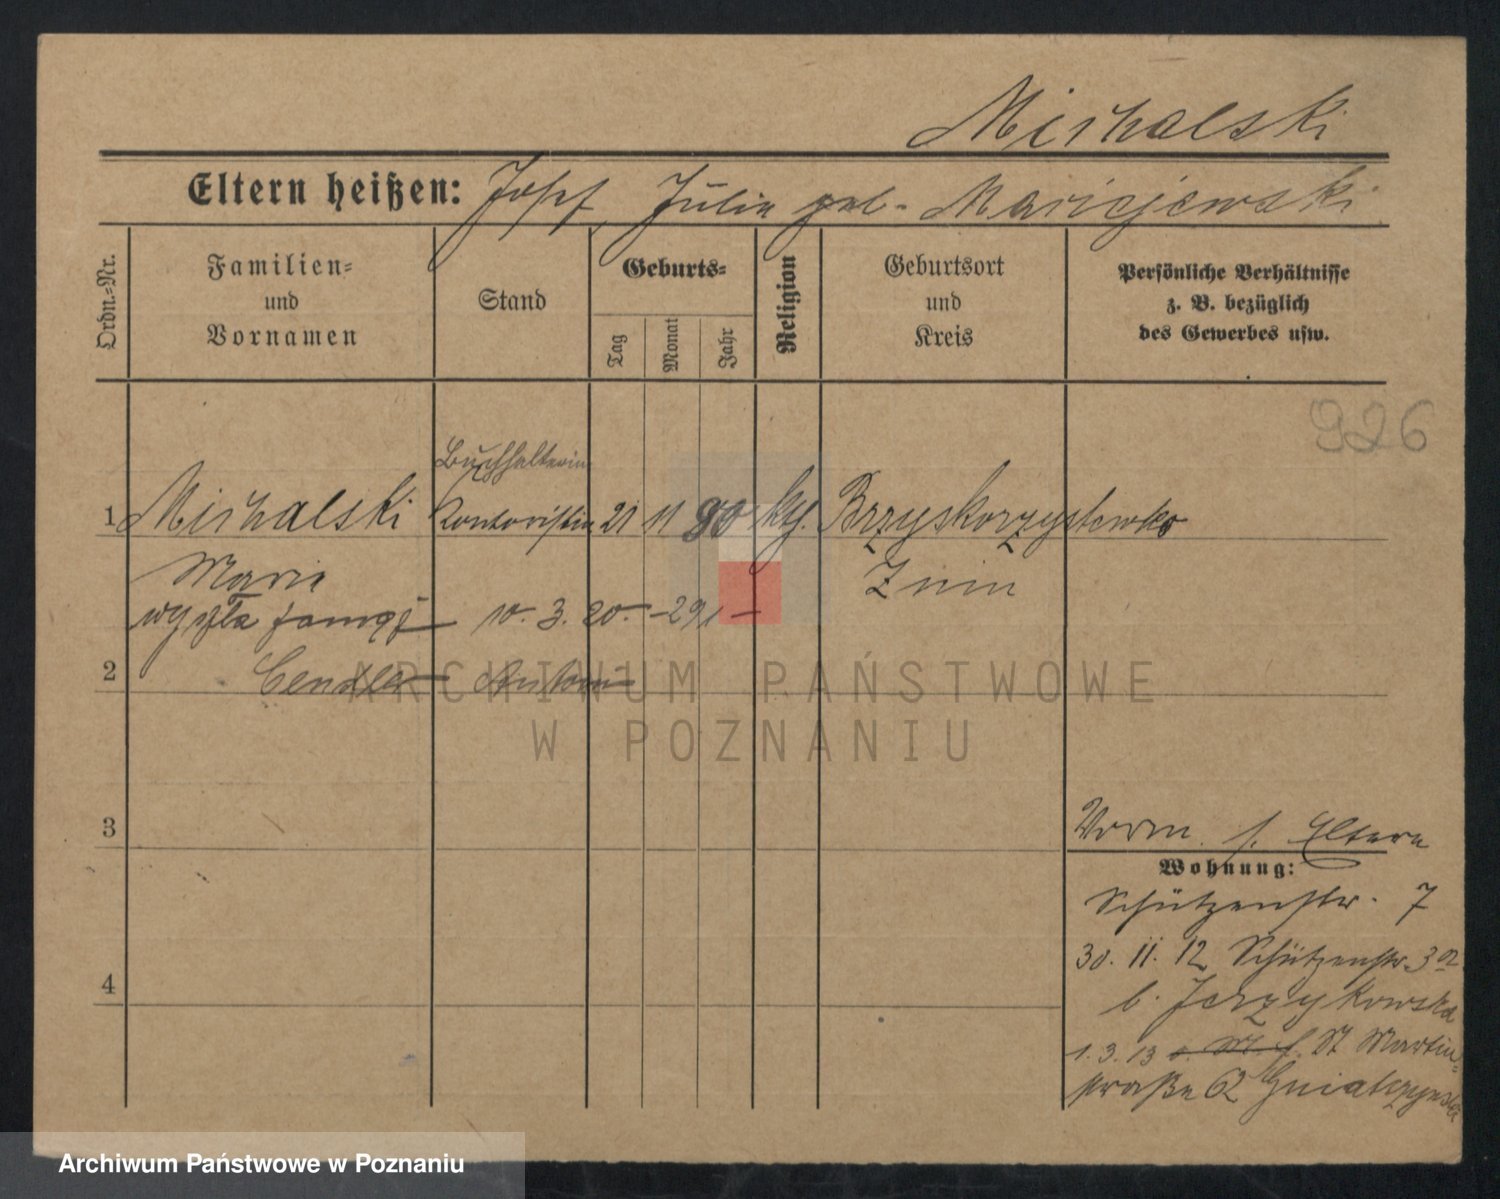 Michalski
Eltern heißen: Josef, Julie geb. Maciejewski
Ordn.-Nr.
Familien- und Vornamen
Stand
Geburts-
Tag
Monat
Jahr
Religion
Geburtsort und Kreis
Persönliche Verhältnisse z. B. bezüglich des Gewerbes usw.
926
Buchhalterin
1 Michalski Kontoristin 21 11 90 kath. Brzyskorzystewko
Marie Znin
wyszła zamąż 10. 3. 20. -291-
2 Cendler Antoni
3
Vorm. s. Eltern
Wohnung:
Schützenstr. 7
30. 11. 12 Schützenstr. 3a
4
b. Jerzykowska
1. 3. 13 St Martin-
straße 62 Gniatczyńska
ARCHIWUM PAŃSTWOWE
W POZNANIU
Archiwum Państwowe w Poznaniu